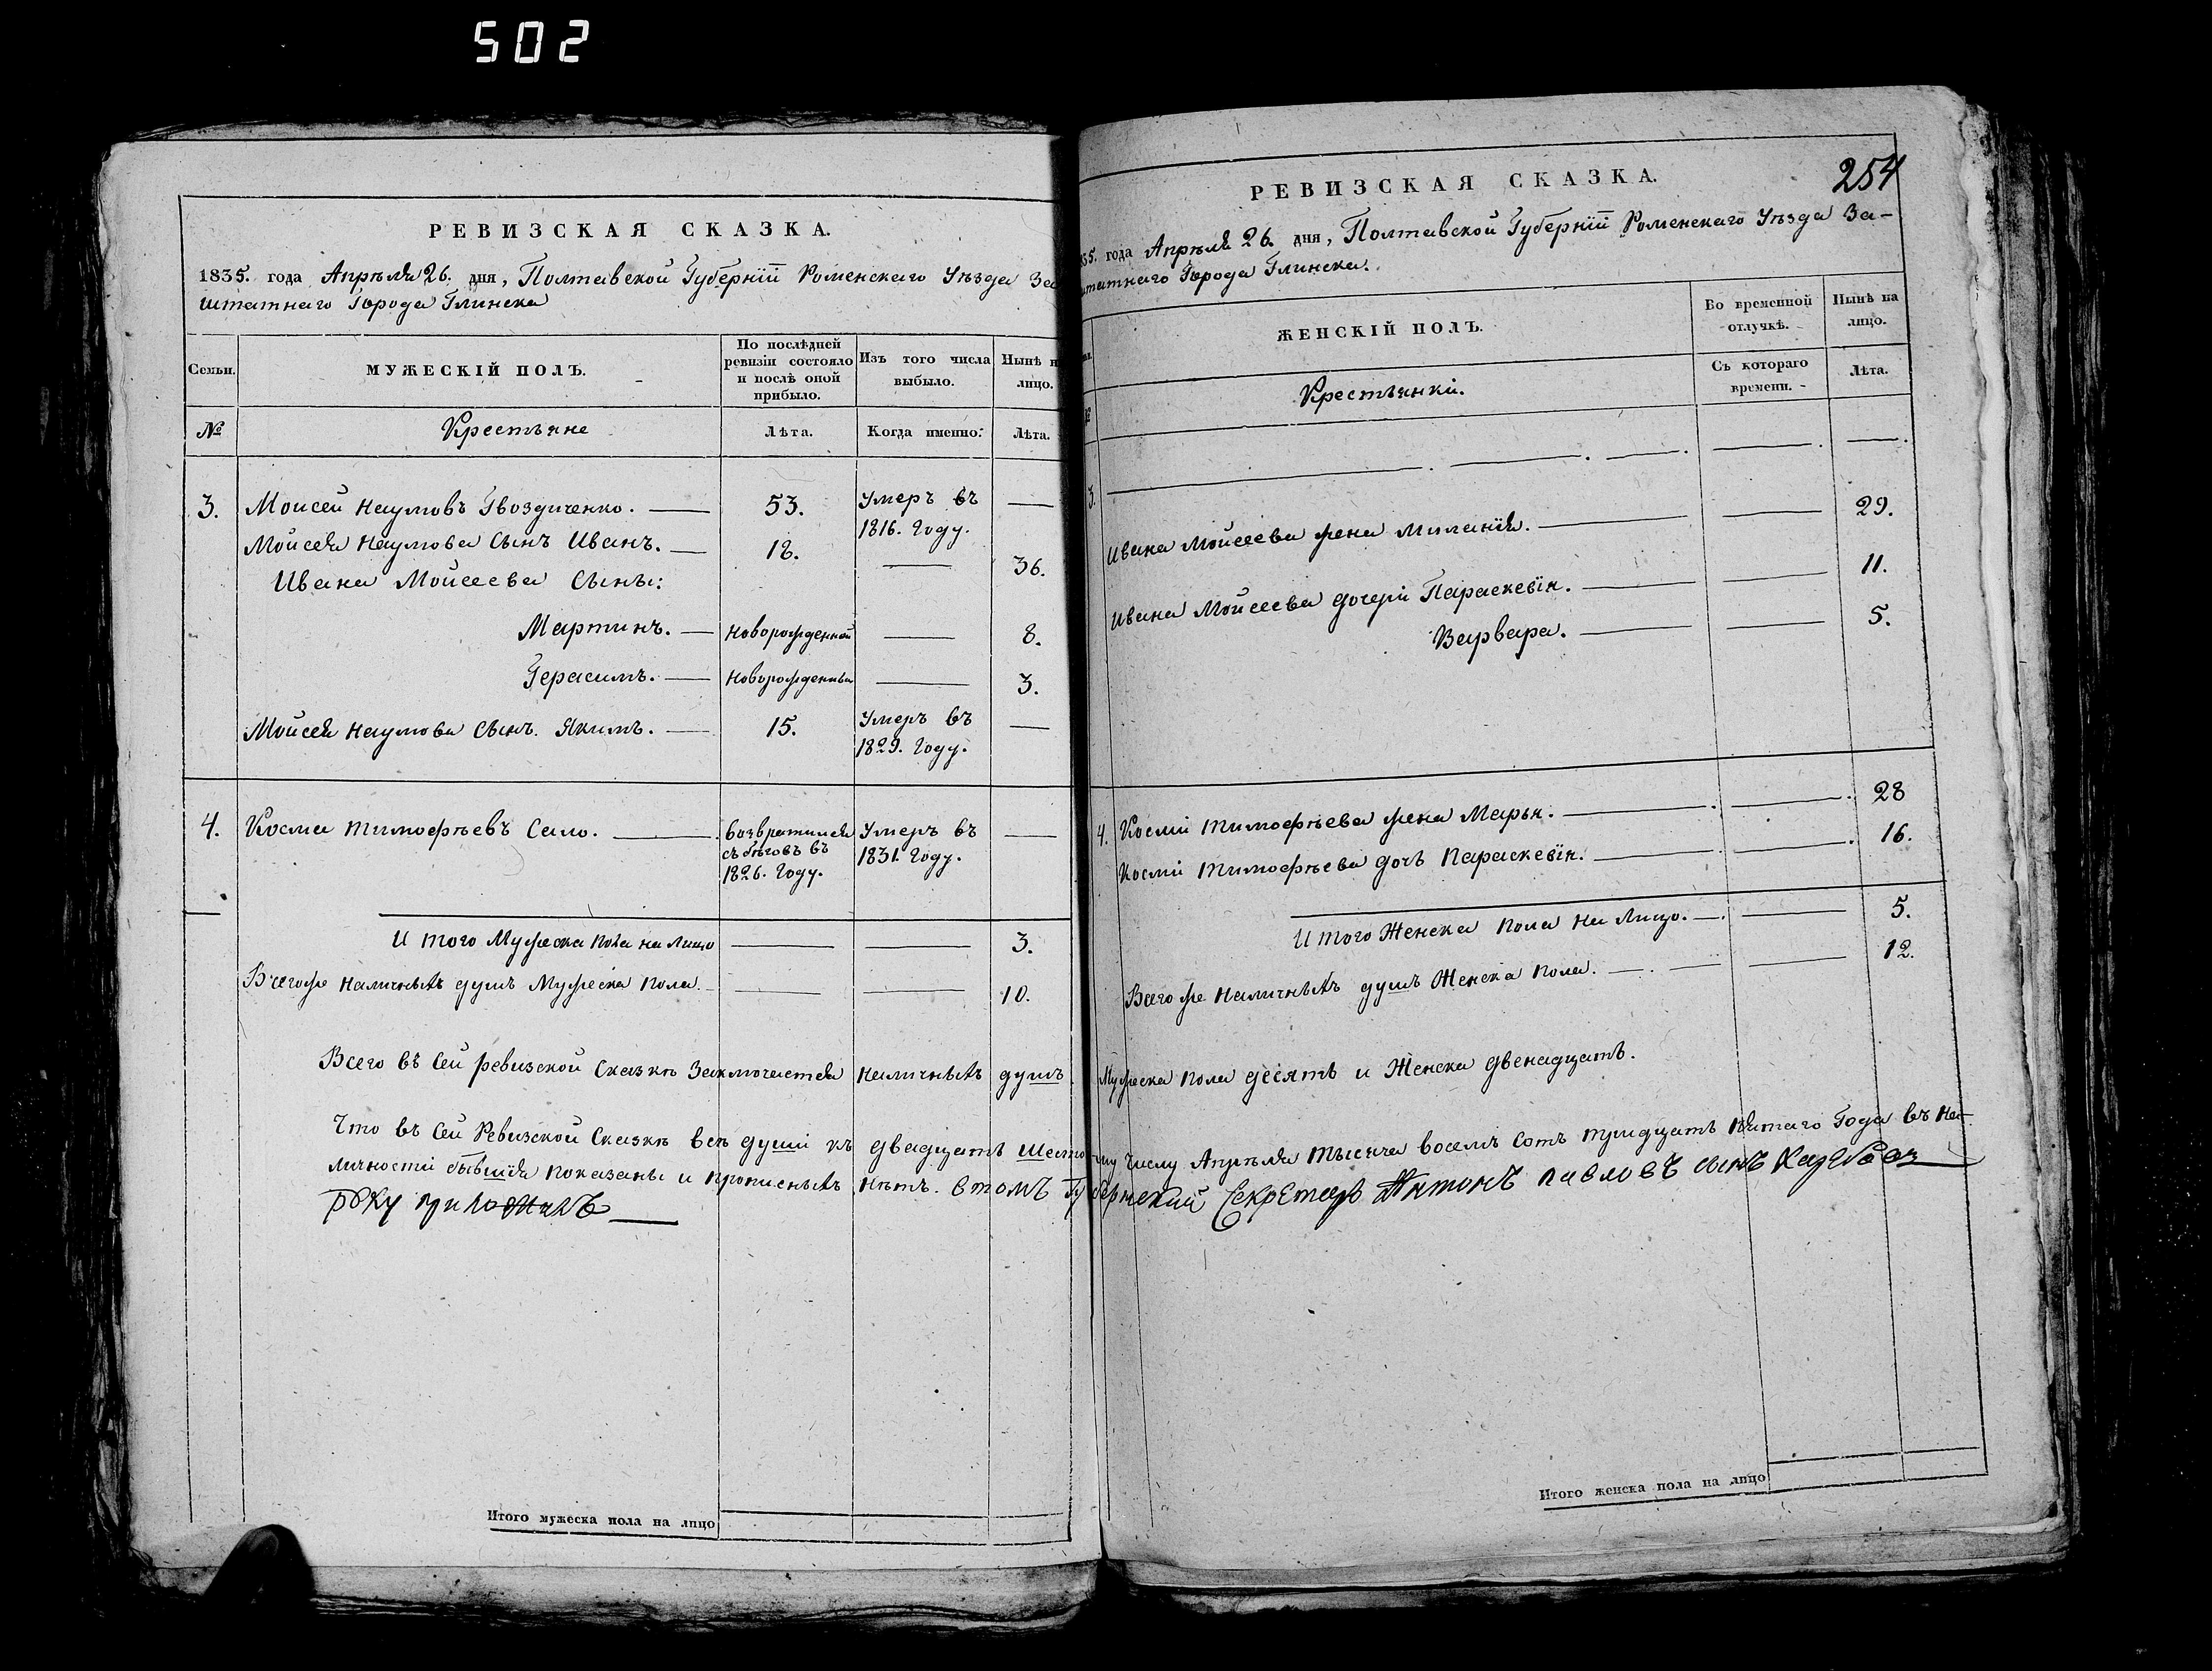 502
РЕВИЗСКАЯ СКАЗКА.
1835. года Апрѣля 26. дня, Полтавской Губерніи Роменскаго Уѣзда За
штатнаго Города Глинска
Семьи.
МУЖЕСКІЙ ПОЛЪ.
По послѣдней
ревизіи состояло
и послѣ оной
прибыло.
Изъ того числа
выбыло.
Нынѣ н
лицо.
№
Крестьяне
Лѣта.
Когда именно.
Лѣта.
3. Моисей Наумовъ Гвоздиченко. 53. Умеръ въ
1816. Году.
Мойсея Наумова Сынъ Иванъ. 18. 36.
Ивана Мойсеева Сыны:
Мартинъ. Новорожденной 8.
Герасимъ. Новорожденный 3.
Мойсея Наумова Сынъ. Якимъ. 15. Умеръ въ
1829. Году.
4. Косма Тимофѣевъ Сало. возвратился Умеръ въ
съ бѣговъ въ 1831. Году.
1826. Году.
И того Мужеска пола на Лицо 3.
Всегоже Наличныхъ душъ Мужеска Пола. 10.
Всего въ Сей ревизской Сказкѣ Заключается Наличныхъ душъ
Что въ Сей Ревизской Сказкѣ всѣ души къ двадцать шесто
личности бывшія показаны и прописныхъ нѣтъ. втомъ Гу
рбку приложилъ
Итого мужеска пола на лицо
254
РЕВИЗСКАЯ СКАЗКА.
35. года Апрѣля 26. дня, Полтавской Губерніи Роменскаго Уѣзда За-
штатнаго Города Глинска.
ЖЕНСКІЙ ПОЛЪ.
Во временной
отлучкѣ.
Нынѣ на
лицо.
Крестьянки.
Съ котораго
времени.
Лѣта.
3.
Ивана Мойсеева жена Миланія. 29.
Ивана Мойсеева дочери Параскевія. 11.
Варвара. 5.
4. Косми Тимофѣева жена Марья. 28
Косми Тимофѣева дочь Параскевія. 16.
И того Женска пола на Лицо. 5.
Всего же Наличныхъ душъ Женска Пола. 12.
Мужеска пола десять и Женска двенадцать.
му Числу Апрѣля тысяча восемь Сотъ тридцать пятаго Года въ На-
бернский Секретарь Антонъ павловъ сынъ
Итого женска пола на лицо